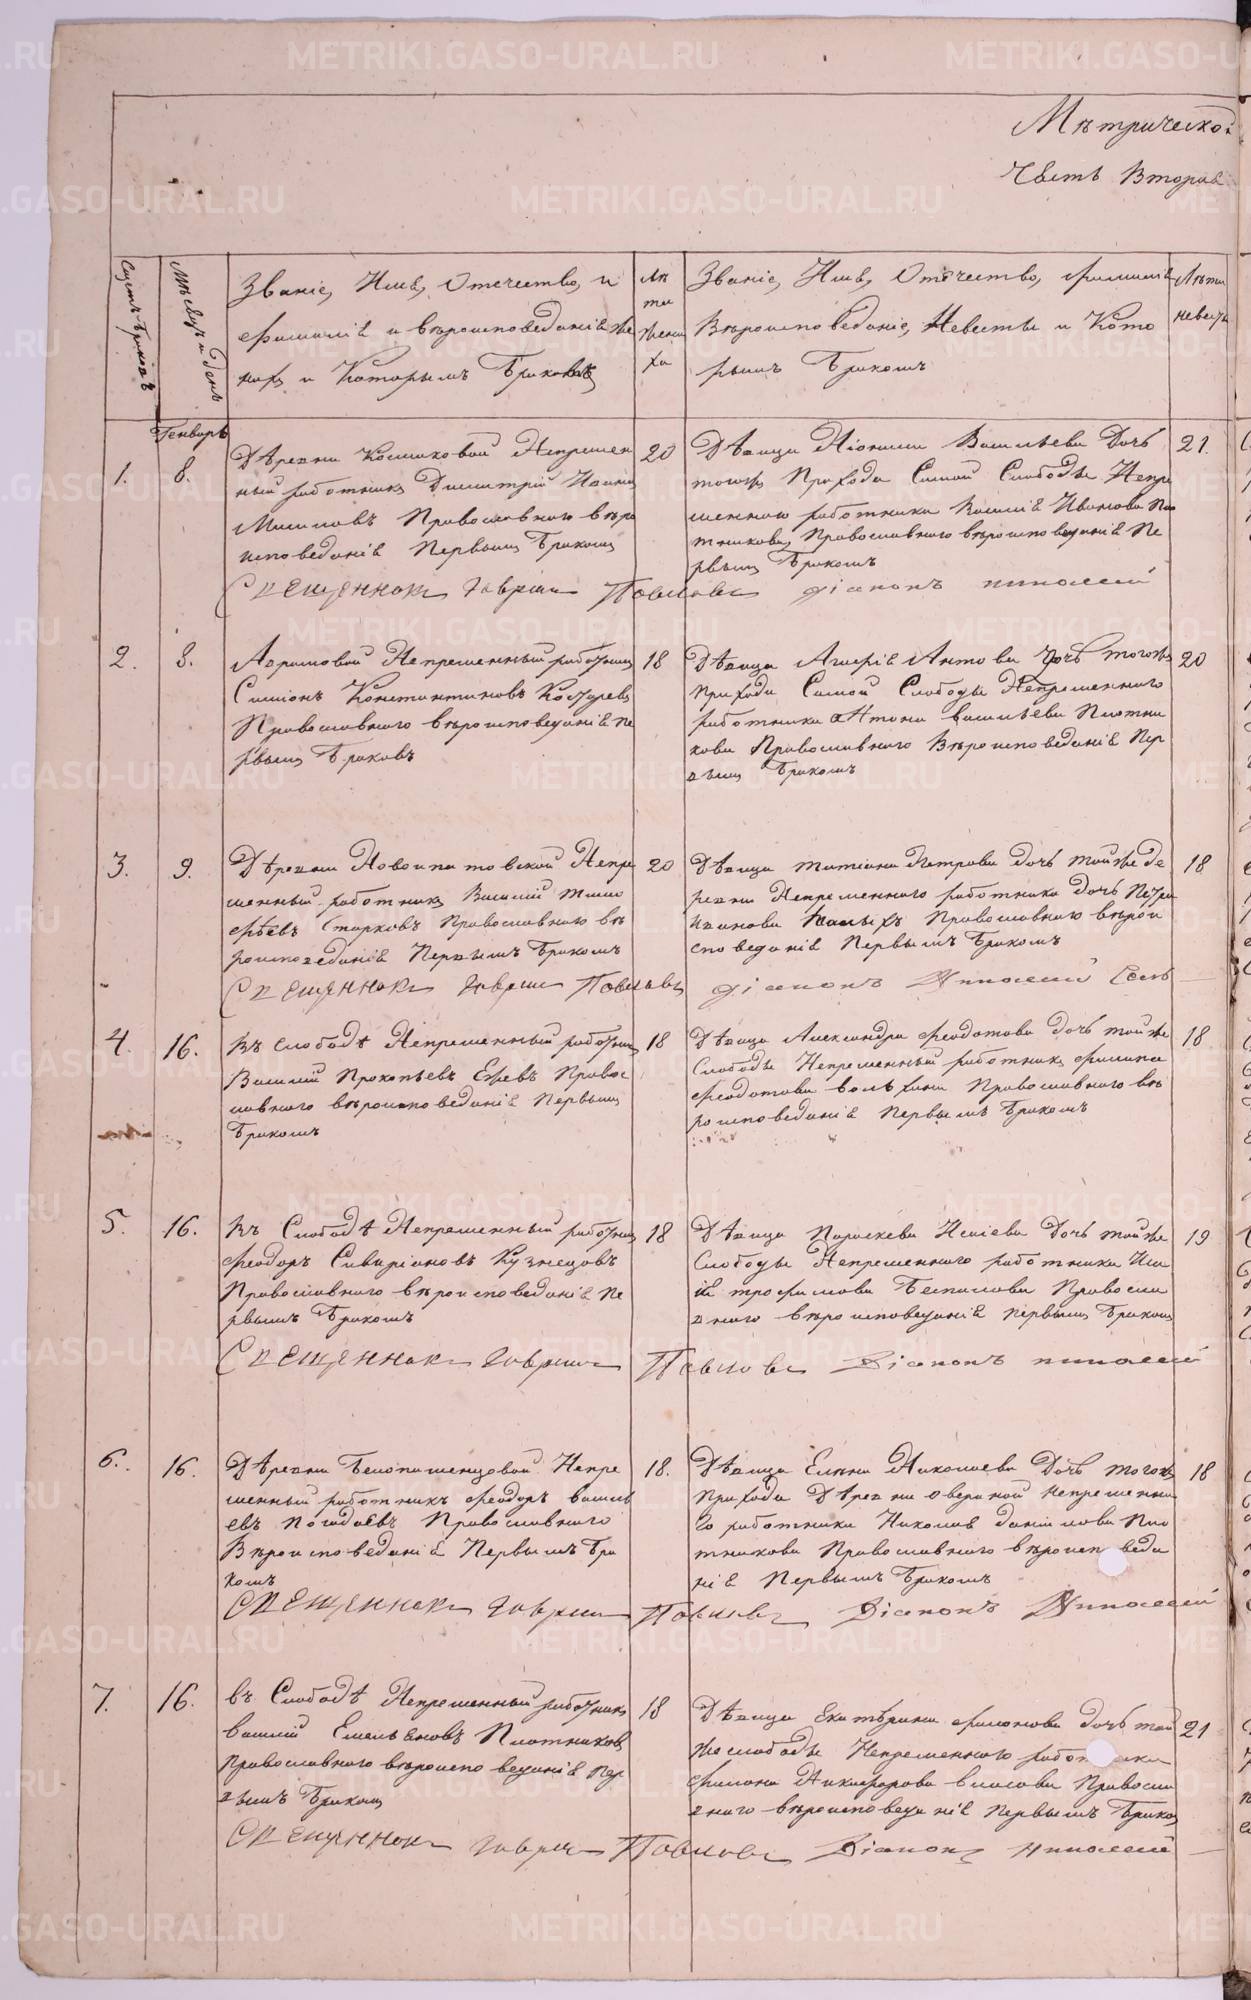 Мѣтрическо
Часть Вторая
Счетъ браковъ
Мѣсяцъ и день
Званіе, Имя, Отчество, и
фамилія и вѣроисповеданія же
ниха и Которымъ Бракомъ
Лѣ
та
жени
ха
Званіе, Имя, Отечество, фамилія
Вѣроисповеданіе, Невесты и Кото
рымъ Бракомъ
Лѣта
невесты
Генварь
1.
8.
Дѣревни Кошаковой Непремен
ный работникъ Димитрій Ивано
Православнаго вѣро
исповеданія Первымъ Бракомъ
20
Дѣвица Васильева Дочь
тогожъ Прихода Самой Слободы Непре
меннаго работника Василія Иванова Пло
тникова Православнаго вѣроисповеданія Пе
рвымъ Бракомъ
21.
Священникъ Гавриилъ Павловъ діаконъ Николай
2.
8.
Непременный работникъ
Симіонъ Константиновъ
Православнаго вѣроисповеданія Пе
рвымъ Браковъ
18
Дѣвица Антова дочь тогожъ
Прихода Самой Слободы Непременнаго
работника Антона васильева Плотни
кова Православнаго Вѣроисповеданія Пер
вымъ Бракомъ
20
3.
9.
Дѣревни Новоипатовской Непре
менный работникъ Василій Тимо
фѣевъ Старковъ Православнаго вѣ
роисповеданія Первымъ Бракомъ
20
Дѣвица татіана Петрова дочь тойже де
ревни Непременнаго работника дочь Петра
Иванова Православнаго вѣрои
споведанія Первымъ Бракомъ
18
Священникъ Гавриилъ Павловъ діаконъ Николай
4.
16.
Въ слободѣ Непременный работникъ
Василій Прокопьевъ Правос
лавнаго вѣроисповеданія Первымъ
Бракомъ
18
Дѣвица Александра феодотова дочь тойже
Слободы Непременный работникъ филипа
феодотова Православнаго вѣ
роисповеданія Первымъ Бракомъ
18
5.
16.
Въ Слободѣ Непременный работникъ
феодоръ Савиріановъ Кузнецовъ
Православнаго вѣроисповеданія Пе
рвымъ Бракомъ
18
Дѣвица Параскева Исаіева Дочь тойже
Слободы Непременнаго работника Иса
іи трофимова Беспалова Правосла
внаго вѣроисповеданія первымъ Бракомъ
19
Священникъ Гавриилъ Павловъ Діаконъ николай
6.
16.
Дѣревни Непре
менный работникъ феодоръ василь
евъ Погадаевъ Православнаго
Вѣроисповеданія Первымъ Бра
комъ
18.
Дѣвица Елена Николаева Дочь тогожъ
прихода Дѣревни Непременна
го работника Николая даніилова Пло
тникова Православнаго вѣроисповеда
нія Первымъ Бракомъ
18
Священникъ Гавриилъ Павловъ Діаконъ Николай
7.
16.
въ Слободѣ Непременный работникъ
василій Емельяновъ Плотниковъ
Православнаго вѣроисповеданія Пер
вымъ Бракомъ
18
Дѣвица Екатѣрина филонова дочь той
же слободы Непременнаго работника
филона Никифорова власова Правосла
внаго вѣроисповеданія первымъ Бракомъ
21
Священникъ Гавриилъ Павловъ Діаконъ Николай
METRIKI.GASO-URAL.RU